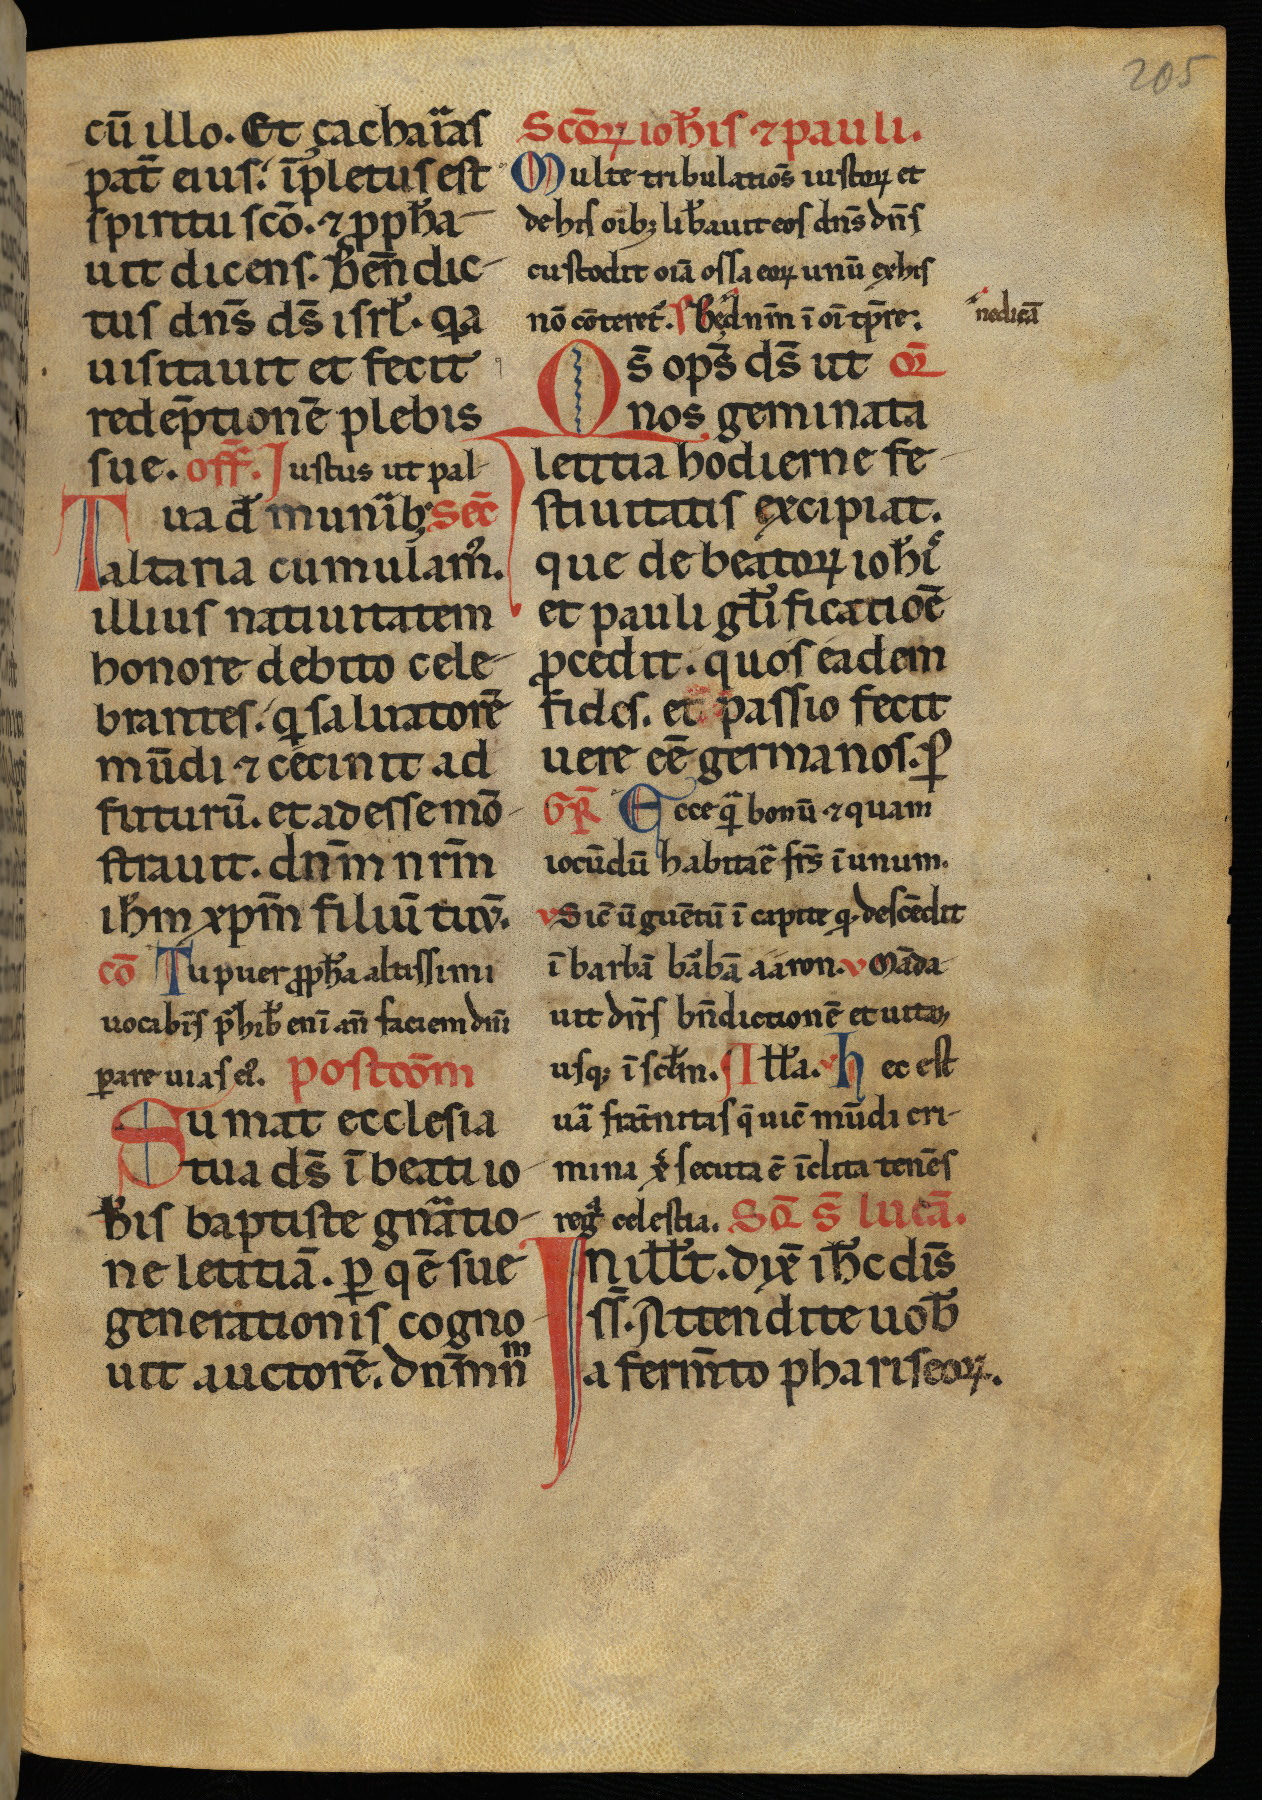 205
cū illo. Et çacharias
pat̄ eius. īpletus est
spiritu scō. ⁊ ꝓph̄a
uit dicens. Ben̄dic
tus dn̄s ds̄ isrl̄. qa
uisitauit et fecit
redēptionē plebis
sue. off̄. Iustus ut pal
Tua d̄ munib; Sec̄
altaria cumulam᷒.
illius natiuitatem
honore debito cele
brantes. q saluatorē
mūdi ⁊ cecinit ad
futurū. et adesse mō
strauit. dn̄m nr̄m
ih̄m xp̄m filiū tuū.
cō Tu puer ꝓph̄a altissimi
uocabis̄ p̄hib̄ eni an̄ faciem dn̄i
ꝑare uias ei᷒. Postcōm
Sumat ecclesia
tua ds̄ ī beati io
h̄is baptiste gnatio
ne letitiā. ꝑ quē sue
generationis cogno
uit auctorē. dn̄m n̄m
Scōꝝ ioh̄is ⁊ pauli.
Multe tribulatiōs iustoꝝ et
de his oīb; lib̄auit eos dn̄s dn̄s
custodit oīa ossa eoꝝ unū ex his
nō cōteret᷒. Ps Bn̄edicā dn̄m ī oī tp̄re.
nedicā
Os̄ ops̄ ds̄ ut Oꝛ̄
nos geminata
letitia hodierne fe
stiuitatis excipiat.
que de beatoꝝ ioh̄i
et pauli gl̄ificatiōē
ꝓcedit. quos eadem
fides. et passio fecit
uere eē germanos. ꝑ
GR̄ Ecce q̄ bonū ⁊ quam
iocūdū habitare fr̄s ī unum.
v Sic̄ ūguētū ī capite qd descēdit
ī barbā barbā aaron. v Māda
uit dn̄s bn̄dictionē et uitā
usq; ī sclm̄. All̄a. v Hec est
uā frat̄nitas q̄ uic̄ mūdi cri
mina x̄ secuta ē īclita tenēs
regā celestia. Sc̄ƌ s̄ lucā.
In ill̄t. dix̄ ih̄c dis̄
ss̄. Attendite uob̄
a ferm̄to phariseoꝝ.